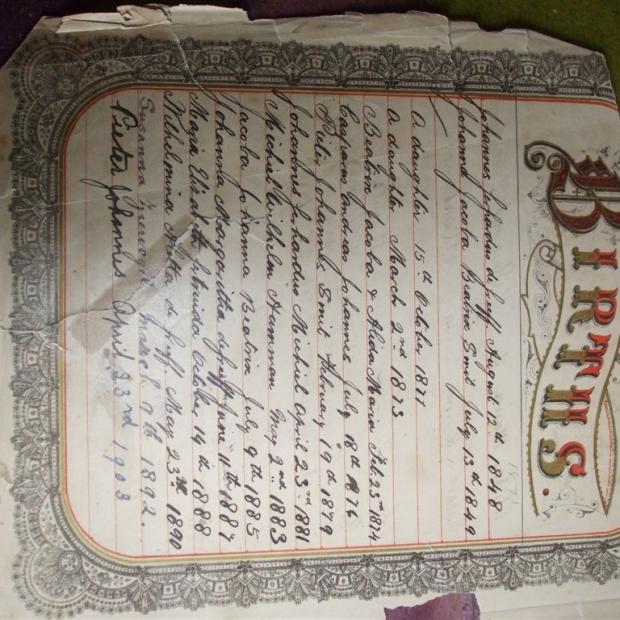 BIRTHS.
Johannes Gerhardus de Graaff August 12th 1848
Johanna Jacoba Beatrix Smit July 13th 1849
A daughter 15th October 1871
A daughter March 2nd 1873
Beatrix Jacoba & Aletta Maria Feb. 23rd 1874
Casparus Andreas Johannes July 18th 1876
Pieter Johannes Smit February 19th 1879
Johannes Gerhardus Michiel April 23rd 1881
Michiel Wilhelm Hamman May 2nd 1883
Jacoba Johanna Beatrix July 9th 1885
Johanna Margaritha de Graaff June 11th 1887
Maria Elisabeth October 19th 1888
Wilhelmina Aletta de Graaff May 23rd 1890
Susanna March 9th 1892.
Pieter Johannes April 23rd 1903